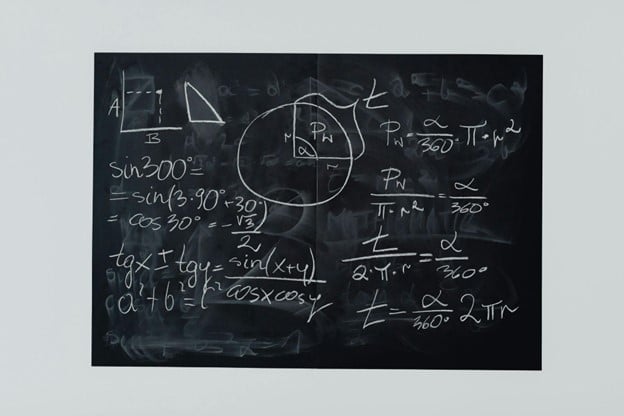 A
B
t
r
Pw
α
r
sin300°=
= sin(3·90°+30°)
= cos30° = -√3/2
tgx ± tgy = sin(x+y)/cosxcosy
a²+b²=c²
Pw = α/360° · π·r²
Pw/π·r² = α/360°
t/2·π·r = α/360°
t = α/360° 2πr